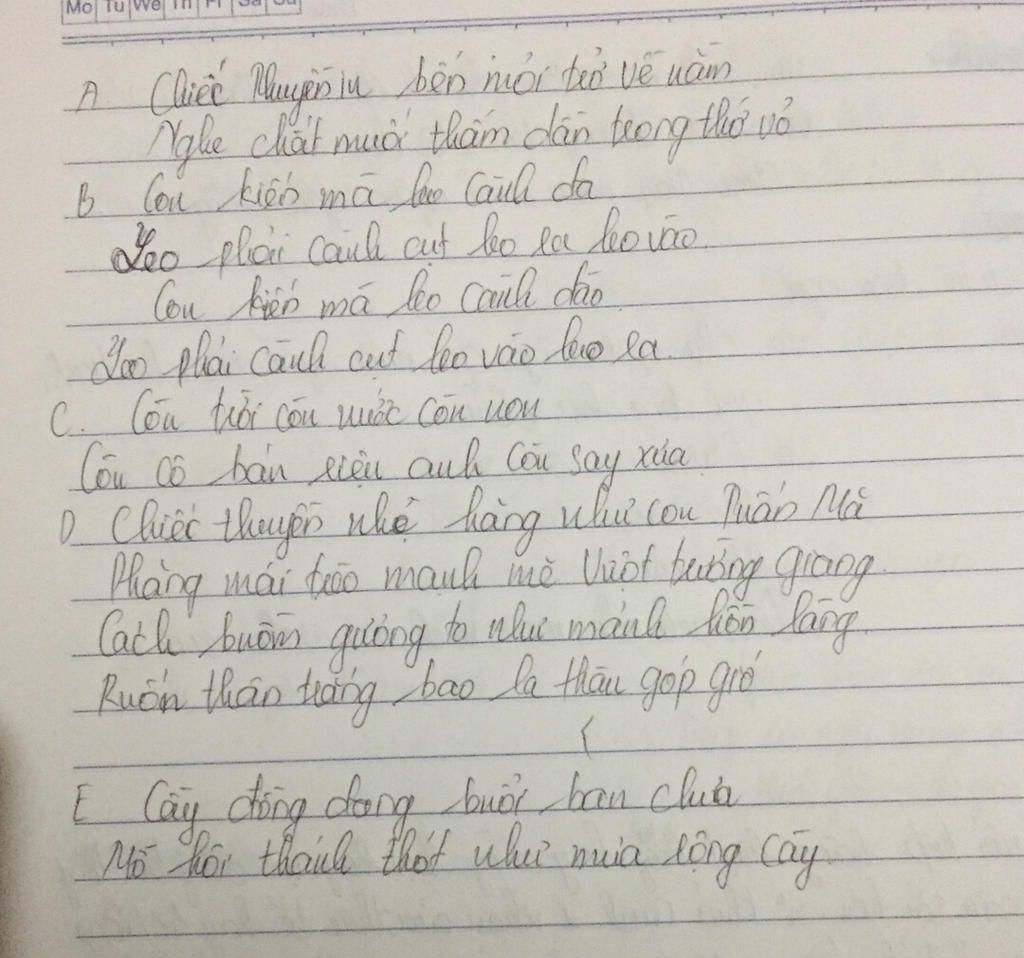 Mo Tu We Th Fr Sa Su
A Chiếc thuyền in bến mỏi trở về nằm
Nghe chất muối thấm dần trong thớ vỏ
B Con kiến mà leo cành đa
Leo phải cành cụt leo ra leo vào
Con kiến mà leo cành đào
Leo phải cành cụt leo vào leo ra
C. Còn trời còn nước còn non
Còn cô bán riệu anh còn say xưa
D Chiếc thuyền nhẹ hàng như con Tuấn Mã
Phăng mái trèo mạnh mẽ Vượt trường giang
Cách buồm gương to như mảnh hồn làng
Rướn thân trắng bao la thâu góp gió
E Cày đồng đang buổi ban chưa
Mồ hôi thánh thót như mưa rộng cày